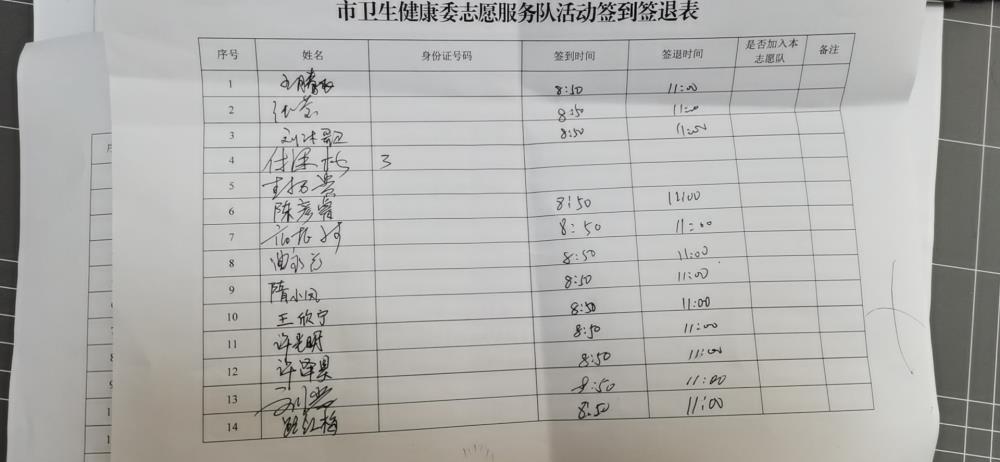 市卫生健康委志愿服务队活动签到签退表
序号 姓名 身份证号码 签到时间 签退时间 是否加入本志愿队 备注
1 8:50 11:00
2 8:50 11:00
3 8:50 11:00
4 3
5
6 陈彦睿 8:50 11:00
7 8:50 11:00
8 8:50 11:00
9 隋小凤 8:50 11:00
10 王欣宁 8:50 11:00
11 许光明 8:50 11:00
12 许泽昊 8:50 11:00
13 8:50 11:00
14 红梅 8:50 11:00